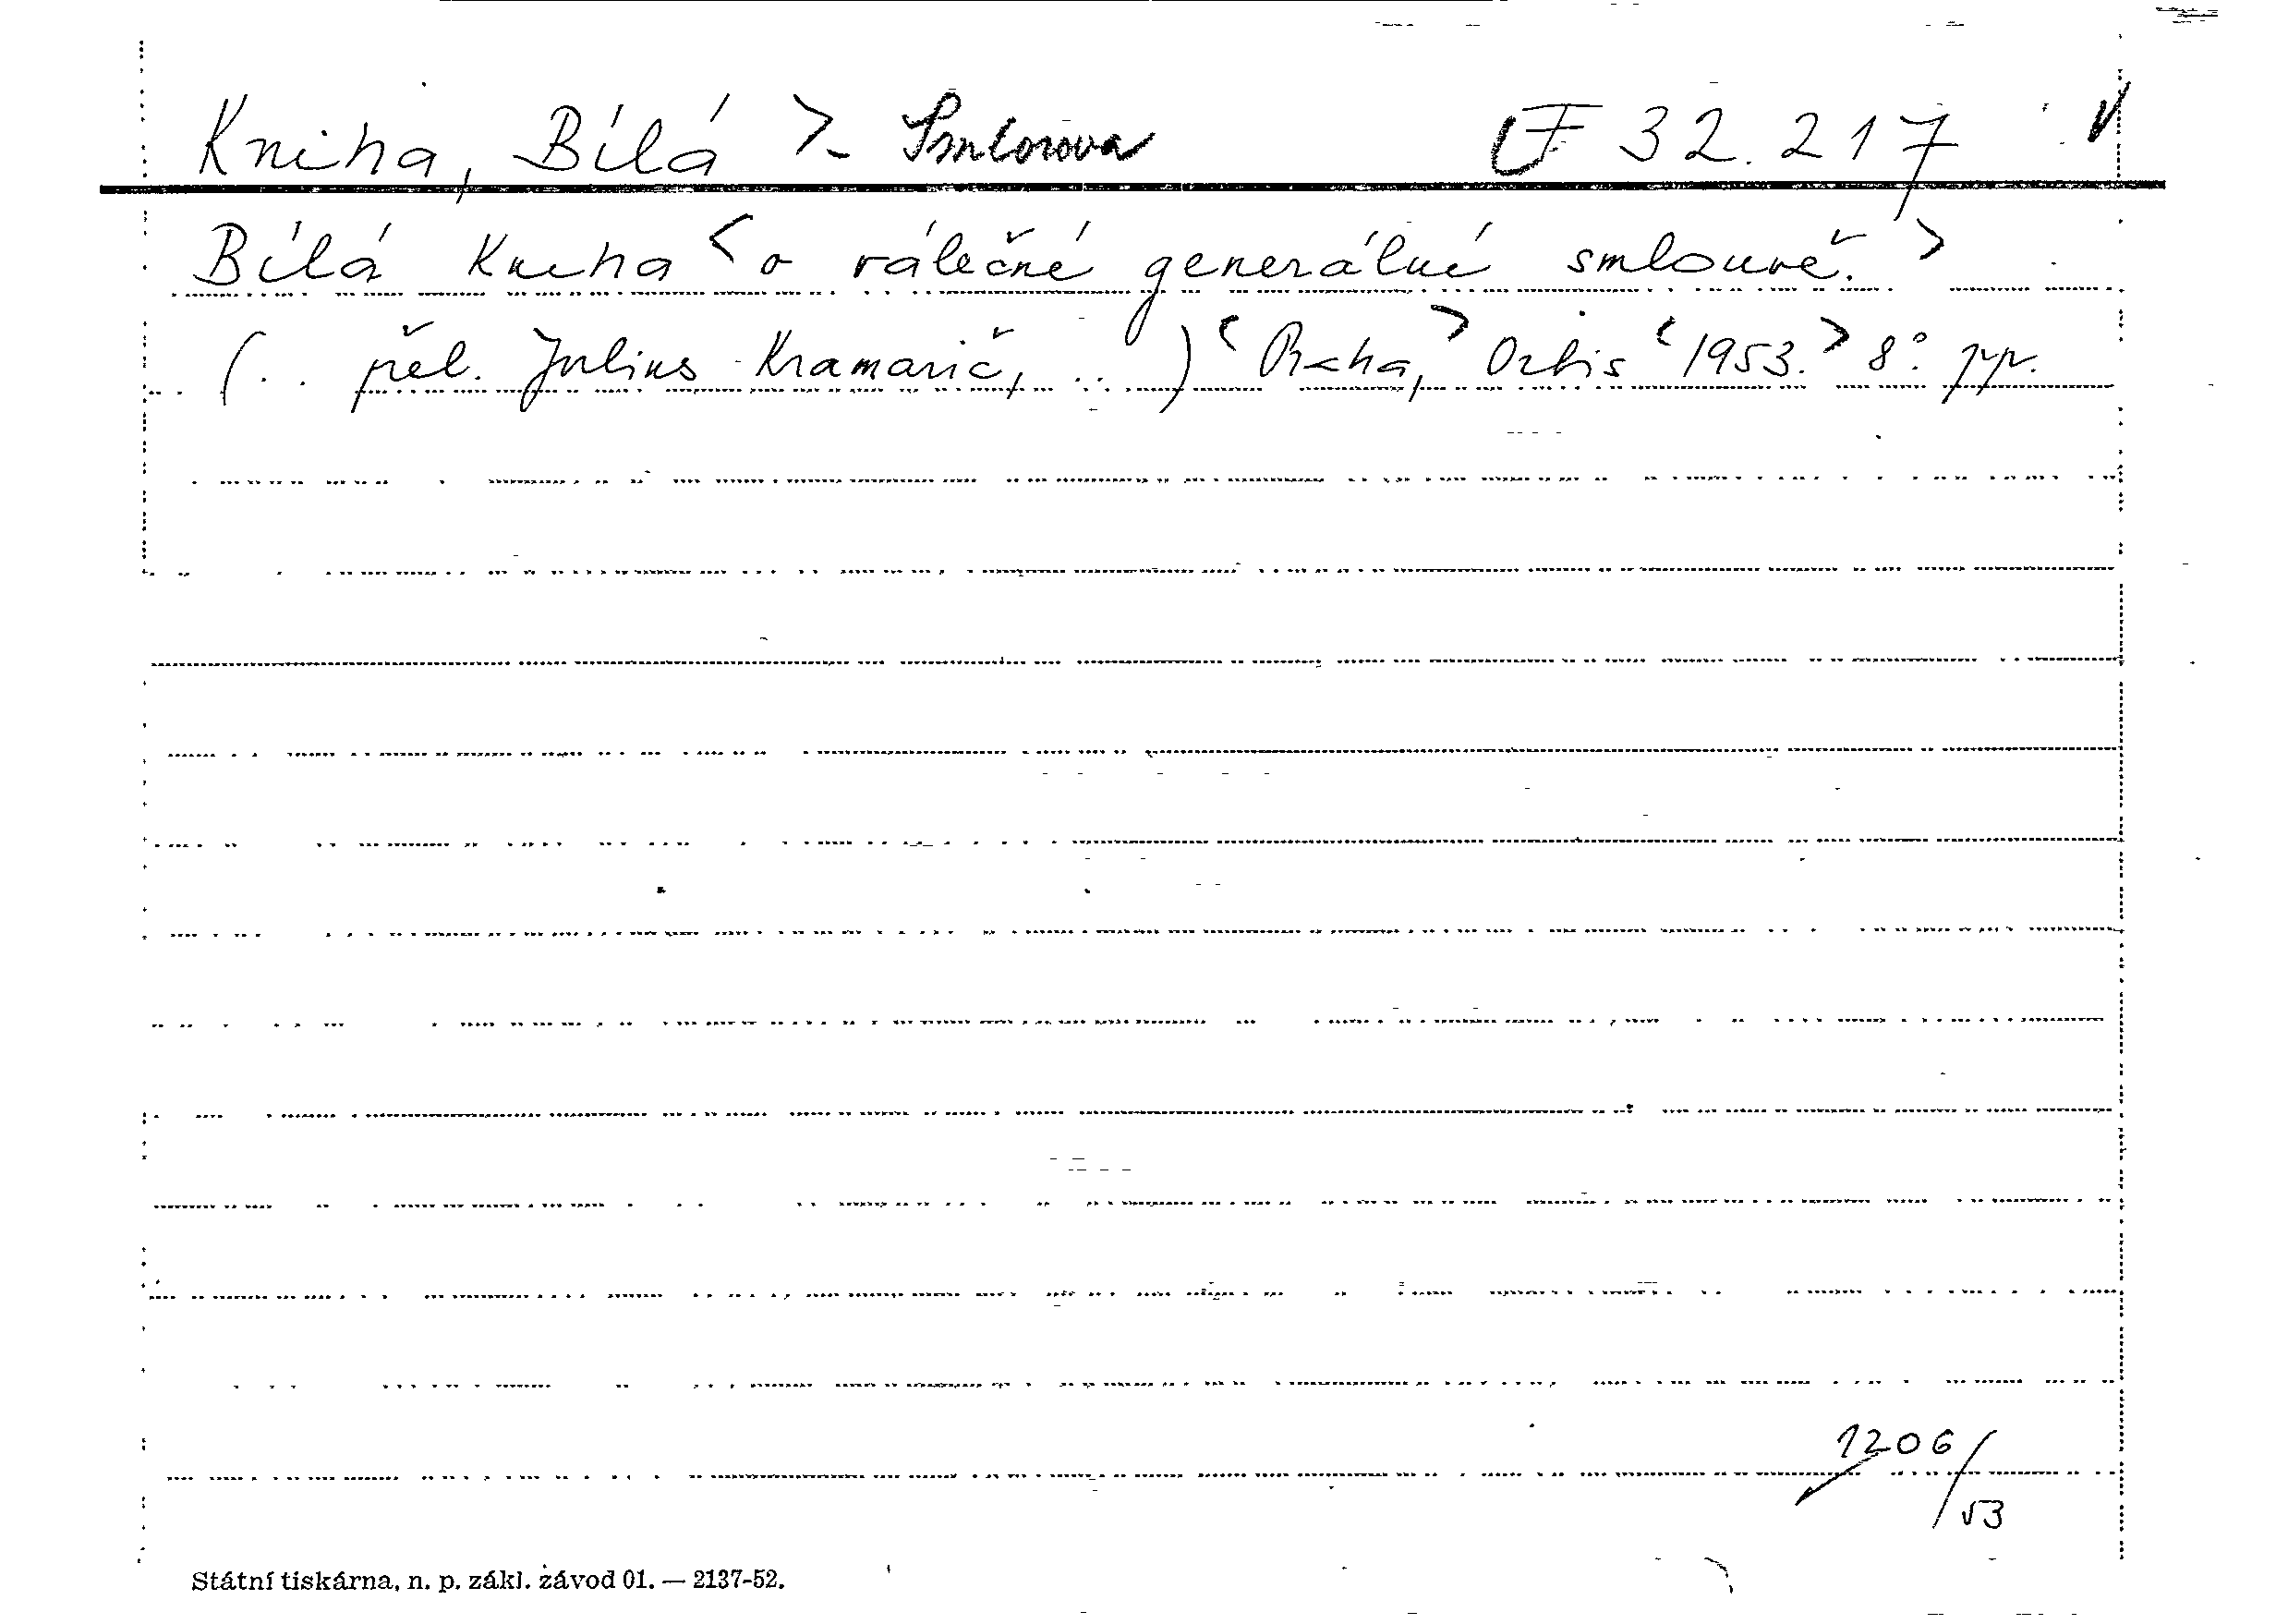 Kniha, Bílá > Smlouva F 32.217
Bílá Kniha < o válečné generální smlouvě. >
(.. přel. Julius Kramarič, ..) < Praha, > Orbis < 1953. > 8°.
1206/53
Státní tiskárna, n. p. zákl. závod 01. — 2137-52.